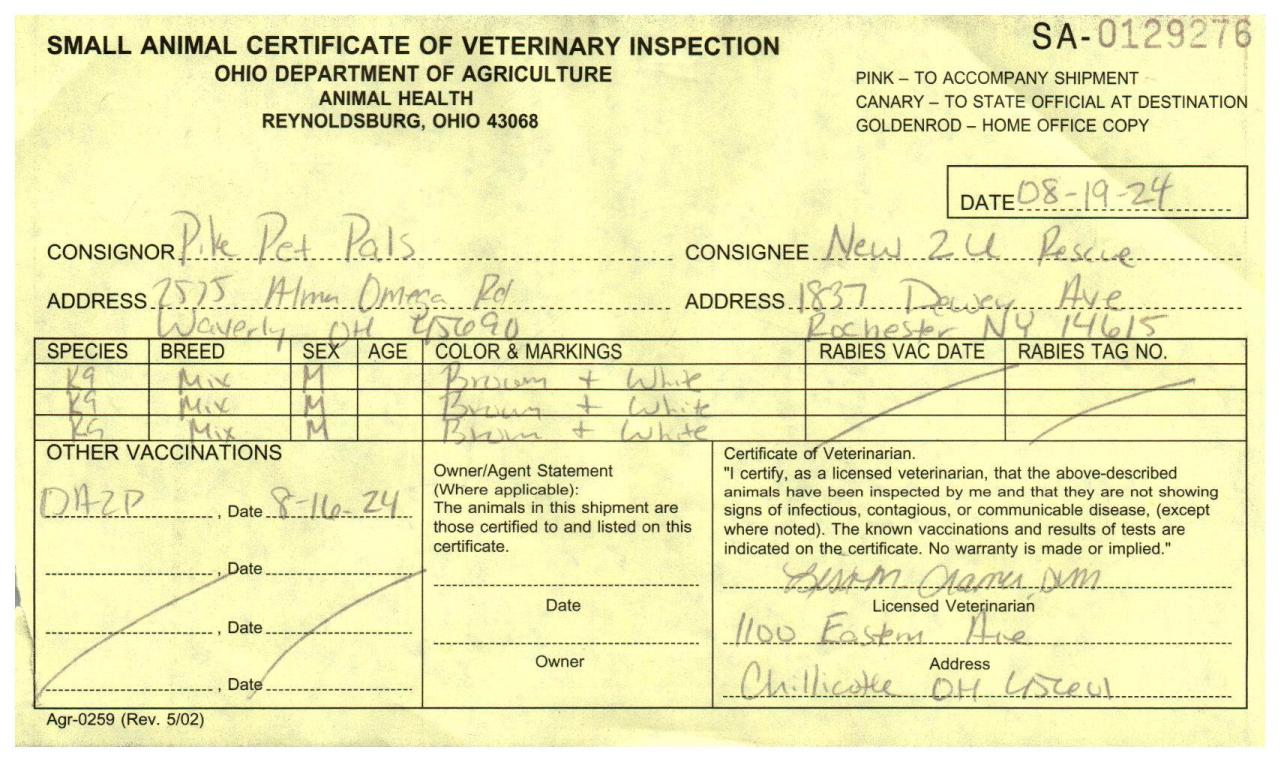 SMALL ANIMAL CERTIFICATE OF VETERINARY INSPECTION
OHIO DEPARTMENT OF AGRICULTURE
ANIMAL HEALTH
REYNOLDSBURG, OHIO 43068
SA-0129276
PINK – TO ACCOMPANY SHIPMENT
CANARY – TO STATE OFFICIAL AT DESTINATION
GOLDENROD – HOME OFFICE COPY
DATE 08-19-24
CONSIGNOR Pike Pet Pals
CONSIGNEE New 2 U Rescue
ADDRESS 2575 Alma Omega Rd
Waverly OH 45690
ADDRESS 1837 Dewey Ave
Rochester NY 14615
SPECIES BREED SEX AGE COLOR & MARKINGS RABIES VAC DATE RABIES TAG NO.
K9 Mix M Brown + White
K9 Mix M Brown + White
K9 Mix M Brown + White
OTHER VACCINATIONS
DA2P, Date 8-16-24
, Date
, Date
, Date
Owner/Agent Statement
(Where applicable):
The animals in this shipment are
those certified to and listed on this
certificate.
Date
Owner
Certificate of Veterinarian.
"I certify, as a licensed veterinarian, that the above-described
animals have been inspected by me and that they are not showing
signs of infectious, contagious, or communicable disease, (except
where noted). The known vaccinations and results of tests are
indicated on the certificate. No warranty is made or implied."
Cramer, DVM
Licensed Veterinarian
1100 Eastern Ave
Address
Chillicothe OH 45601
Agr-0259 (Rev. 5/02)